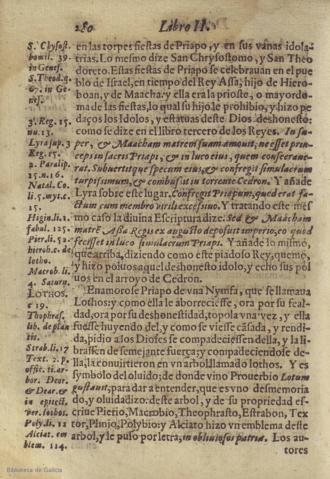 280 Libro II.
S. Chrysost.
homil. 39.
in Genes.
S. Theod. q.
67. in Genes.
3. Reg. 15.
nu. 13.
Lyra sup. 3
Reg. 15.
2. Paralip.
15. n. 16.
Natal. Co.
li. 5. myt. c.
15.
Higin. li. 2.
fabul. 125.
Pier. li. 52.
hierob. c. de
lotho.
Macrob. li.
4. Satur.
LOTHOS.
c 19.
Theophras.
lib. de plantis.
Strab. li. 17
Text. 2. p.
offit. ti. arbor.
Polyb. li. 12
Alciat. em
blem. 114.
en las torpes fiestas de Priapo, y en sus vanas idolatrias.
Lo mesmo dize San Chrysostomo, y San Theodoreto.
Estas fiestas de Priapo se celebrauan en el pueblo
de Israel, en tiempo del Rey Assa; hijo de Hieroboan,
y de Maacha; y ella era la prioste, o mayordoma
de las fiestas, lo qual su hijo le prohibio, y hizo pedaços
los Idolos, y estatuas deste Dios deshonesto;
como se dize en el libro tercero de los Reyes. In super,
& Maacham matrem suam amouit, ne esset princeps
in sacris Priapi, & in luco eius, quem consecrauerat.
Subuertitque specum eius, & confregit simulacrum
turpissimum, & combusit in torrente Cedron. Y añade
Lyra sobre este lugar. Confregit Priapum, quod erat factum
cum membro virili excessiuo. Y tratando este mesmo
caso la diuina Escriptura dize. Sed & Maacham
matrē Asa Regis ex augusto deposuit imperio, eo quod
fecisset in luco simulacrum Priapi. Y añade lo mismo,
que arriba, diziendo como este piadoso Rey, quemò,
y hizo poluos aquel deshonesto idolo, y echo sus poluos
en el arroyo de Cedron.
Enamorose Priapo de vna Nymfa, que se llamaua
Lothos: y como ella le aborreciesse, ora por su fealdad,
ora por su deshonestidad, topola vna vez, y ella
fuesse huyendo del, y como se viesse cãsada, y rendida,
pidio a los Dioses se compadeciessen della, y la librassen
de semejante fuerça; y compadeciendose della,
la conuirtieron en vn arbol llamado lothos. Y es
symbolo del oluido; de donde vino Prouerbio Lotum
gustauit, para dar a entender, que es vno desmemoriado,
y oluidadizo: deste arbol, y de su propiedad escriue
Pierio, Macrobio, Theophrasto, Estrabon, Textor,
Plinio, Polybio: y Alciato hizo vn emblema deste
arbol, y le puso por letra; in obliuiosos patriæ. Los autores
Biblioteca de Galicia